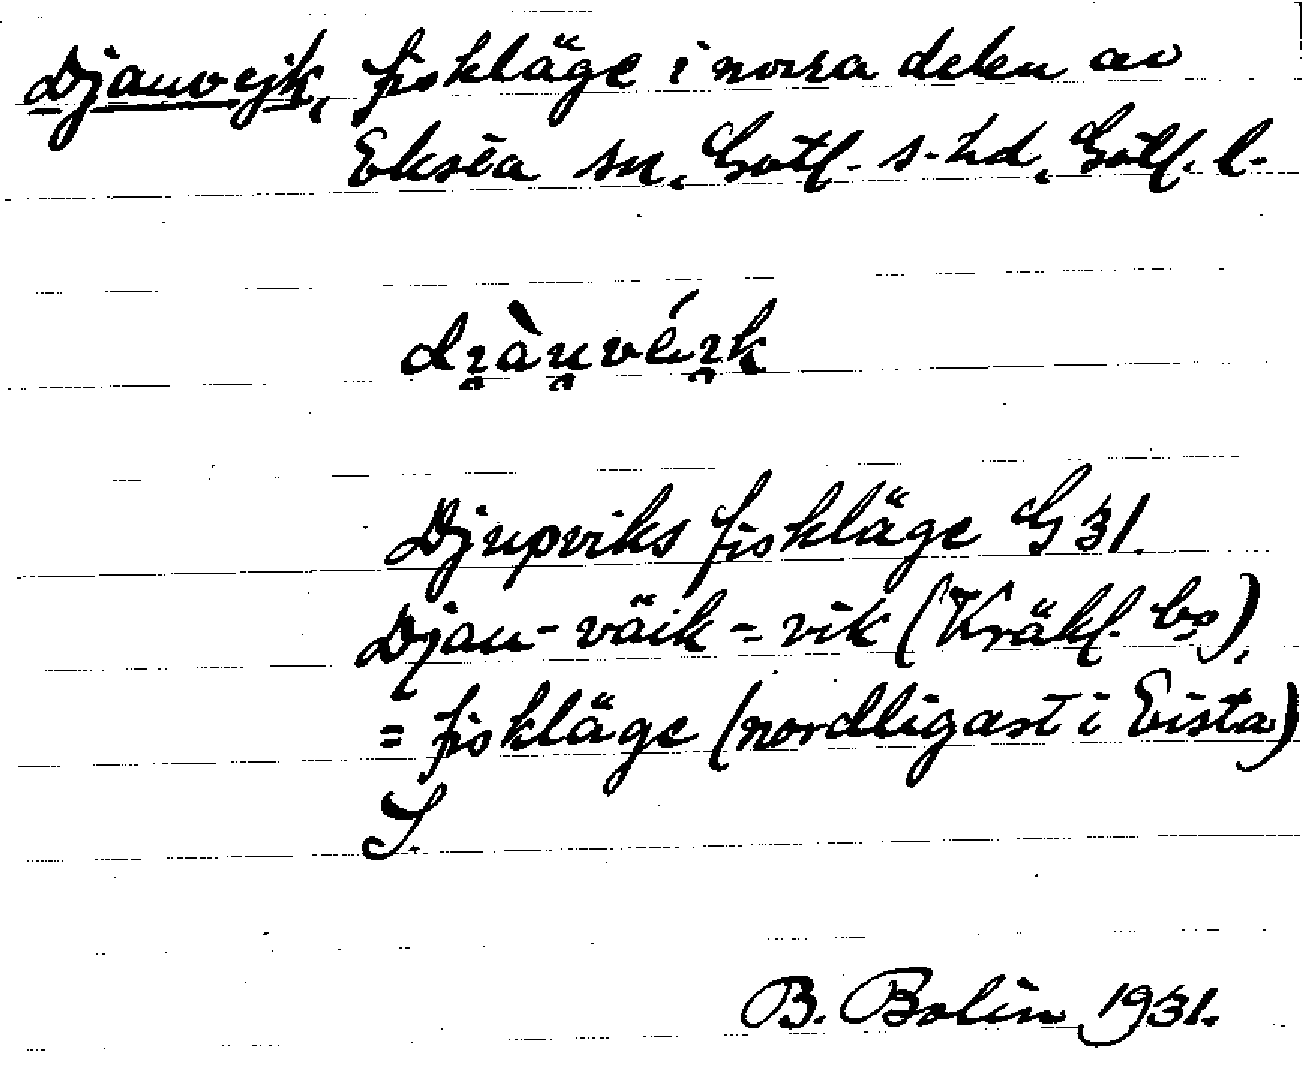 Djauvejk, fiskläge i norra delen av
Eksta sn, Gotl. s. hd, Gotl. l.
Djupviks fiskläge G 31.
Djau-väik = vik (Kräkl. bs),
= fiskläge (nordligast i Eista)
S.
B. Bolin 1931.